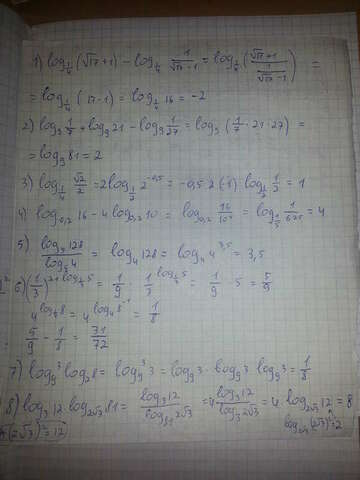 1) log_{1/4}(√17+1) − log_{1/4} 1/(√17−1) = log_{1/4}((√17+1)/(1/(√17−1))) =
= log_{1/4}(17−1) = log_{1/4} 16 = −2
2) log_9 1/7 + log_9 21 − log_9 1/27 = log_9(1/7 · 21 · 27) =
= log_9 81 = 2
3) log_{1/4} √2/2 = 2 log_{1/2} 2^{-0,5} = −0,5 · 2 (−1) log_{1/2} 1/2 = 1
4) log_{0,2} 16 − 4 log_{0,2} 10 = log_{0,2} 16/10^4 = log_{1/5} 1/625 = 4
5) log_5 128 / log_5 4 = log_4 128 = log_4 4^{3,5} = 3,5
6) (1/3)^{2+log_{1/3} 5} = 1/9 · 1/3^{log_{1/3} 5} = 1/9 · 5 = 5/9
4^{log_4 8} = 4^{log_4 8^{-1}} = 1/8
5/9 − 1/8 = 31/72
7) log_9^3 log_2 8 = log_9^3 3 = log_9 3 · log_9 3 · log_9 3 = 1/8
8) log_3 12 · log_{2√3} 81 = log_3 12 / log_{81} 2√3 = 4 log_3 12 / log_3 2√3 = 4 log_{2√3} 12 = 8
(2√3)^2 = 12) log_{2√3} (2√3)^2 = 2